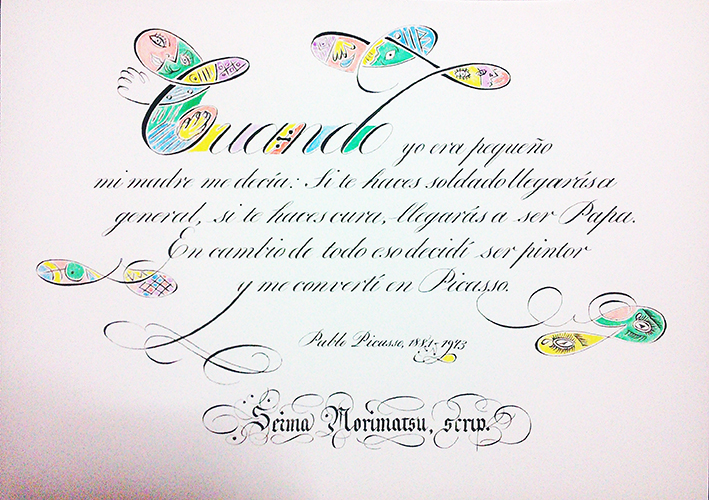 Cuando yo era pequeño
mi madre me decía: Si te haces soldado llegarás a
general, si te haces cura, llegarás a ser Papa.
En cambio de todo eso decidí ser pintor
y me convertí en Picasso.
Pablo Picasso, 1881-1973
Seima Morimatsu, scrip.